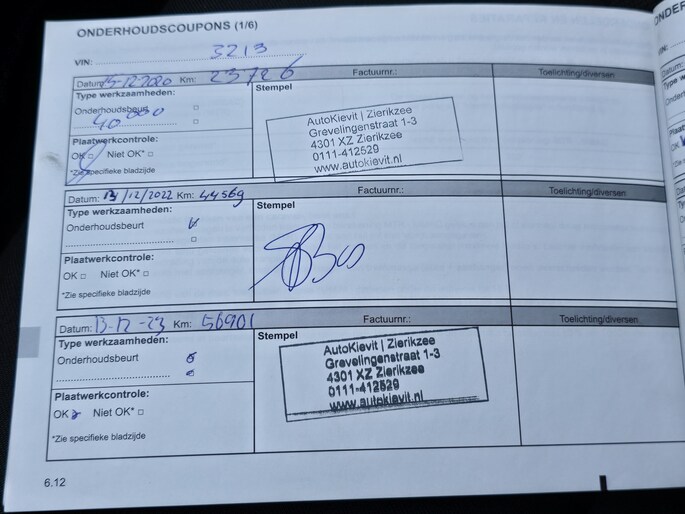 ONDERHOUDSCOUPONS (1/6)
VIN: 3213
Datum: 15-12-2020 Km: 23726 Factuurnr.: Toelichting/diversen
Type werkzaamheden: Stempel
Onderhoudsbeurt
40000
Plaatwerkcontrole:
OK Niet OK*
*Zie specifieke bladzijde
AutoKievit | Zierikzee
Grevelingenstraat 1-3
4301 XZ Zierikzee
0111-412529
www.autokievit.nl
Datum: /12/2022 Km: 44569 Factuurnr.: Toelichting/diversen
Type werkzaamheden: Stempel
Onderhoudsbeurt
Plaatwerkcontrole:
OK Niet OK*
*Zie specifieke bladzijde
Datum: 13-12-23 Km: 56901 Factuurnr.: Toelichting/diversen
Type werkzaamheden: Stempel
Onderhoudsbeurt
Plaatwerkcontrole:
OK Niet OK*
*Zie specifieke bladzijde
AutoKievit | Zierikzee
Grevelingenstraat 1-3
4301 XZ Zierikzee
0111-412529
www.autokievit.nl
6.12